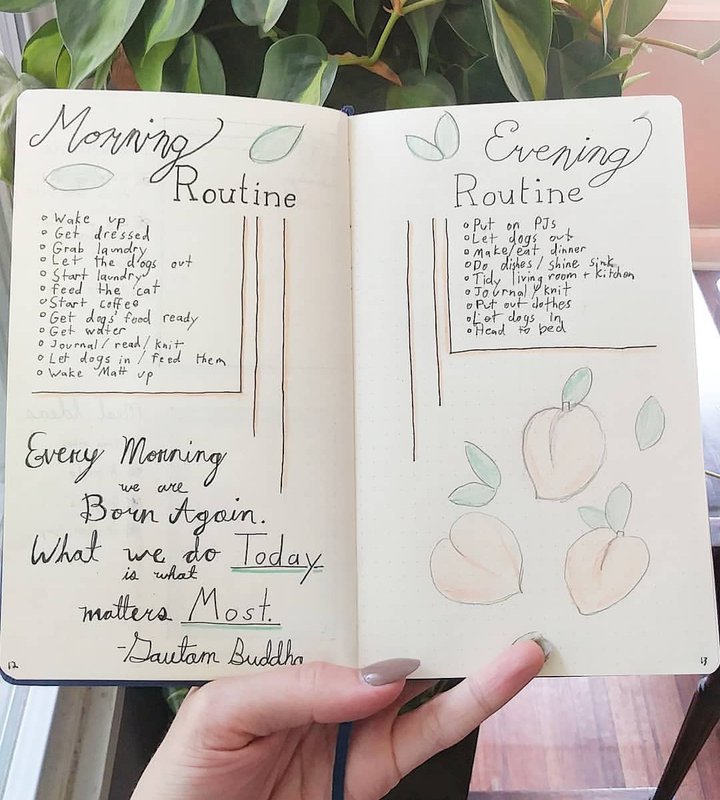 Morning
Routine
Wake up
Get dressed
Grab laundry
Let the dogs out
Start laundry
feed the cat
Start coffee
Get dogs' food ready
Get water
Journal/read/knit
Let dogs in/feed them
Wake Matt up
Every Morning
we are
Born Again.
What we do Today
is what
matters Most.
-Gautam Buddha
12
Evening
Routine
Put on PJs
Let dogs out
Make/eat dinner
Do dishes/shine sink
Tidy living room + Kitchen
Journal/knit
Put out clothes
Let dogs in
Head to bed
13